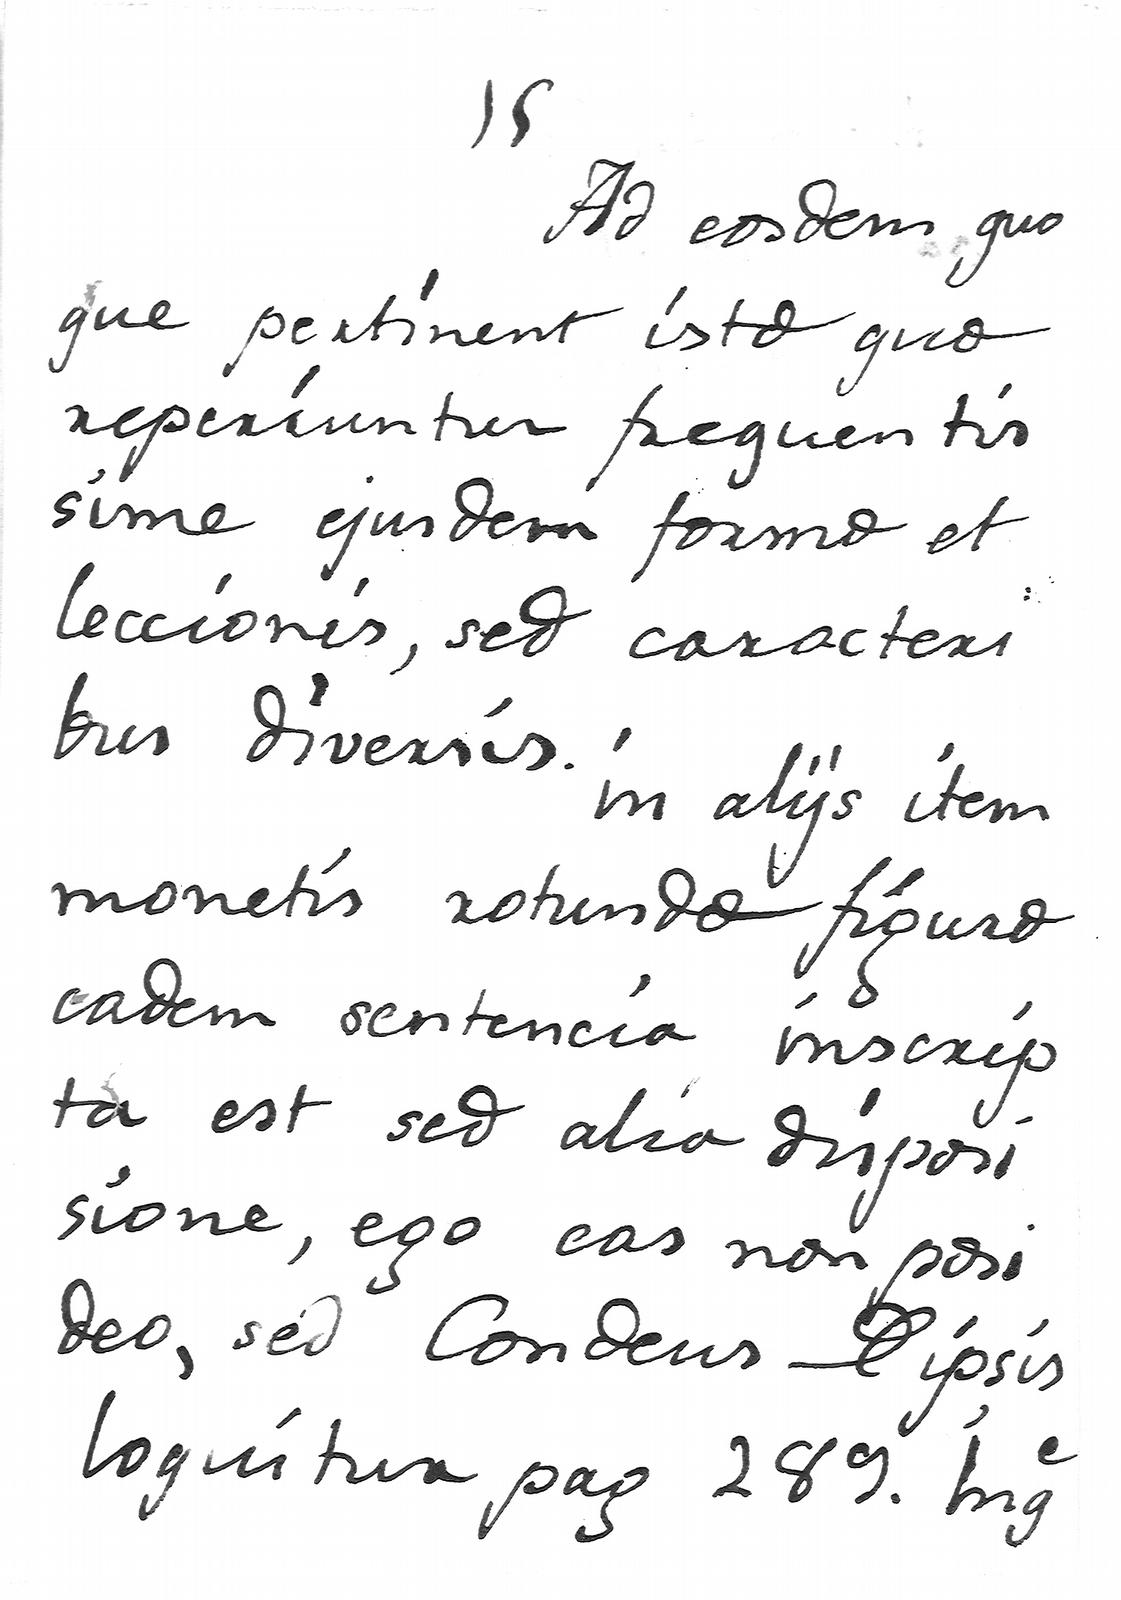 15
Ad eosdem quo
que pertinent istæ quæ
reperiuntur frequentis
sime ejusdem formæ et
leccionis, sed caracteri
bus diversis.
in alijs item
monetis rotundæ figuræ
eadem sentencia inscrip
ta est sed alia disposi
sione, ego eas non posi
deo, sed Condeus D ipsis
loquitur pag 289. Ing^e